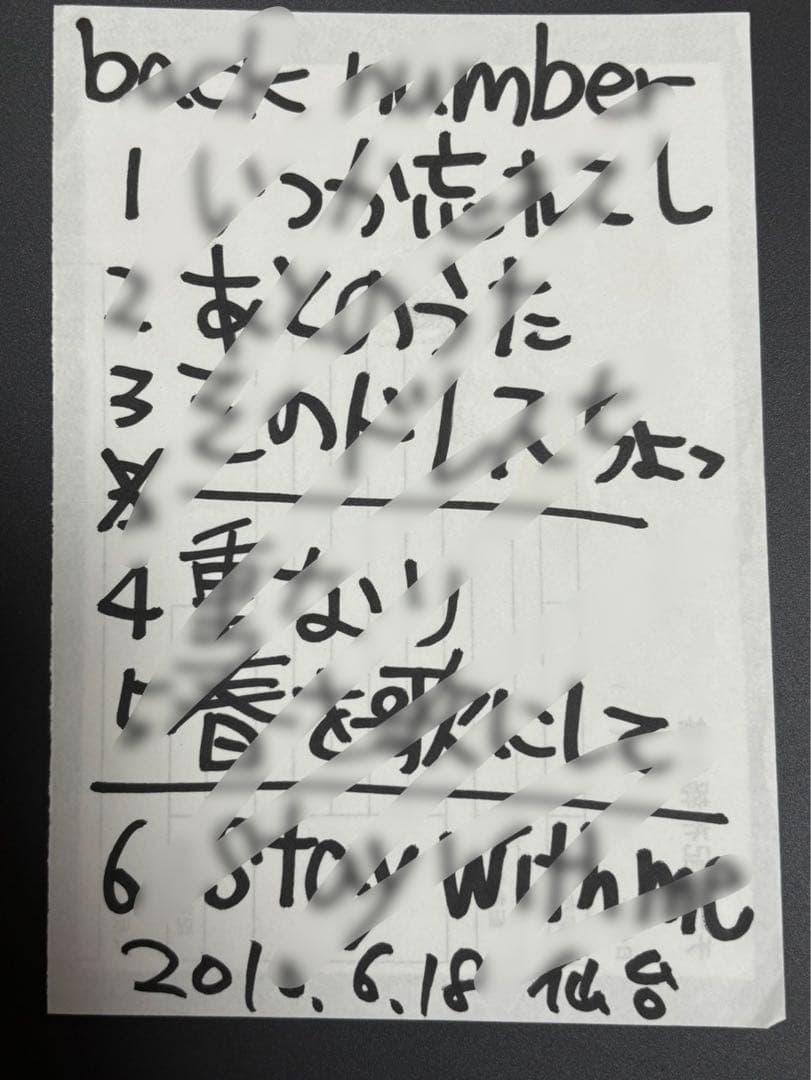 back number
1 いつか忘れてし
2 あとのうた
3 そのドレスちょっ
4 重なり
5 春を歌にして
6 stay with me
6.18 仙台